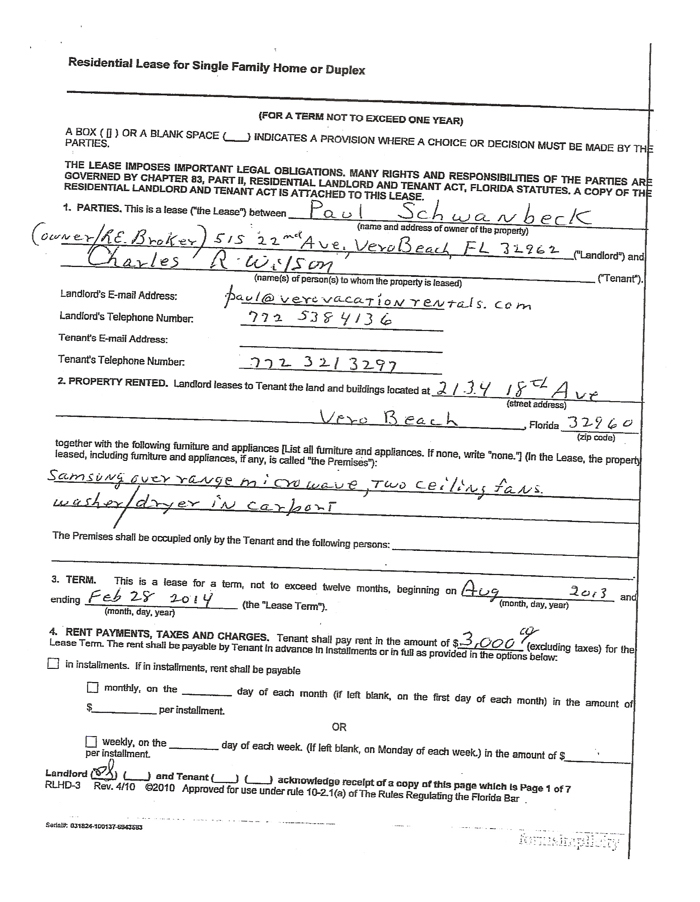 Residential Lease for Single Family Home or Duplex
(FOR A TERM NOT TO EXCEED ONE YEAR)
A BOX ( [] ) OR A BLANK SPACE (___) INDICATES A PROVISION WHERE A CHOICE OR DECISION MUST BE MADE BY THE
PARTIES.
THE LEASE IMPOSES IMPORTANT LEGAL OBLIGATIONS. MANY RIGHTS AND RESPONSIBILITIES OF THE PARTIES ARE
GOVERNED BY CHAPTER 83, PART II, RESIDENTIAL LANDLORD AND TENANT ACT, FLORIDA STATUTES. A COPY OF THE
RESIDENTIAL LANDLORD AND TENANT ACT IS ATTACHED TO THIS LEASE.
1. PARTIES. This is a lease ("the Lease") between Paul Schwanbeck
(name and address of owner of the property)
(owner/R.E. Broker) 515 22nd Ave, Vero Beach, FL 32962 ("Landlord") and
Charles R. Wilson ("Tenant").
(name(s) of person(s) to whom the property is leased)
Landlord's E-mail Address: paul@verovacationrentals.com
Landlord's Telephone Number: 772 538 4136
Tenant's E-mail Address:
Tenant's Telephone Number: 772 321 3297
2. PROPERTY RENTED. Landlord leases to Tenant the land and buildings located at 2134 18th Ave
(street address)
Vero Beach, Florida 32960
(zip code)
together with the following furniture and appliances [List all furniture and appliances. If none, write "none."] (In the Lease, the property
leased, including furniture and appliances, if any, is called "the Premises"):
Samsung over range microwave, two ceiling fans.
washer/dryer in carport
The Premises shall be occupied only by the Tenant and the following persons:
3. TERM. This is a lease for a term, not to exceed twelve months, beginning on Aug 2013 and
(month, day, year)
ending Feb 28 2014 (the "Lease Term").
(month, day, year)
4. RENT PAYMENTS, TAXES AND CHARGES. Tenant shall pay rent in the amount of $3,000 (excluding taxes) for the
Lease Term. The rent shall be payable by Tenant in advance in installments or in full as provided in the options below:
in installments. If in installments, rent shall be payable
monthly, on the ________ day of each month (if left blank, on the first day of each month) in the amount of
$________ per installment.
OR
weekly, on the ________ day of each week. (If left blank, on Monday of each week.) in the amount of $_____
per installment.
Landlord (___) (___) and Tenant (___) (___) acknowledge receipt of a copy of this page which is Page 1 of 7
RLHD-3 Rev. 4/10 ©2010 Approved for use under rule 10-2.1(a) of The Rules Regulating the Florida Bar
Serial#: 031824-100137-6943583
formsimplicity